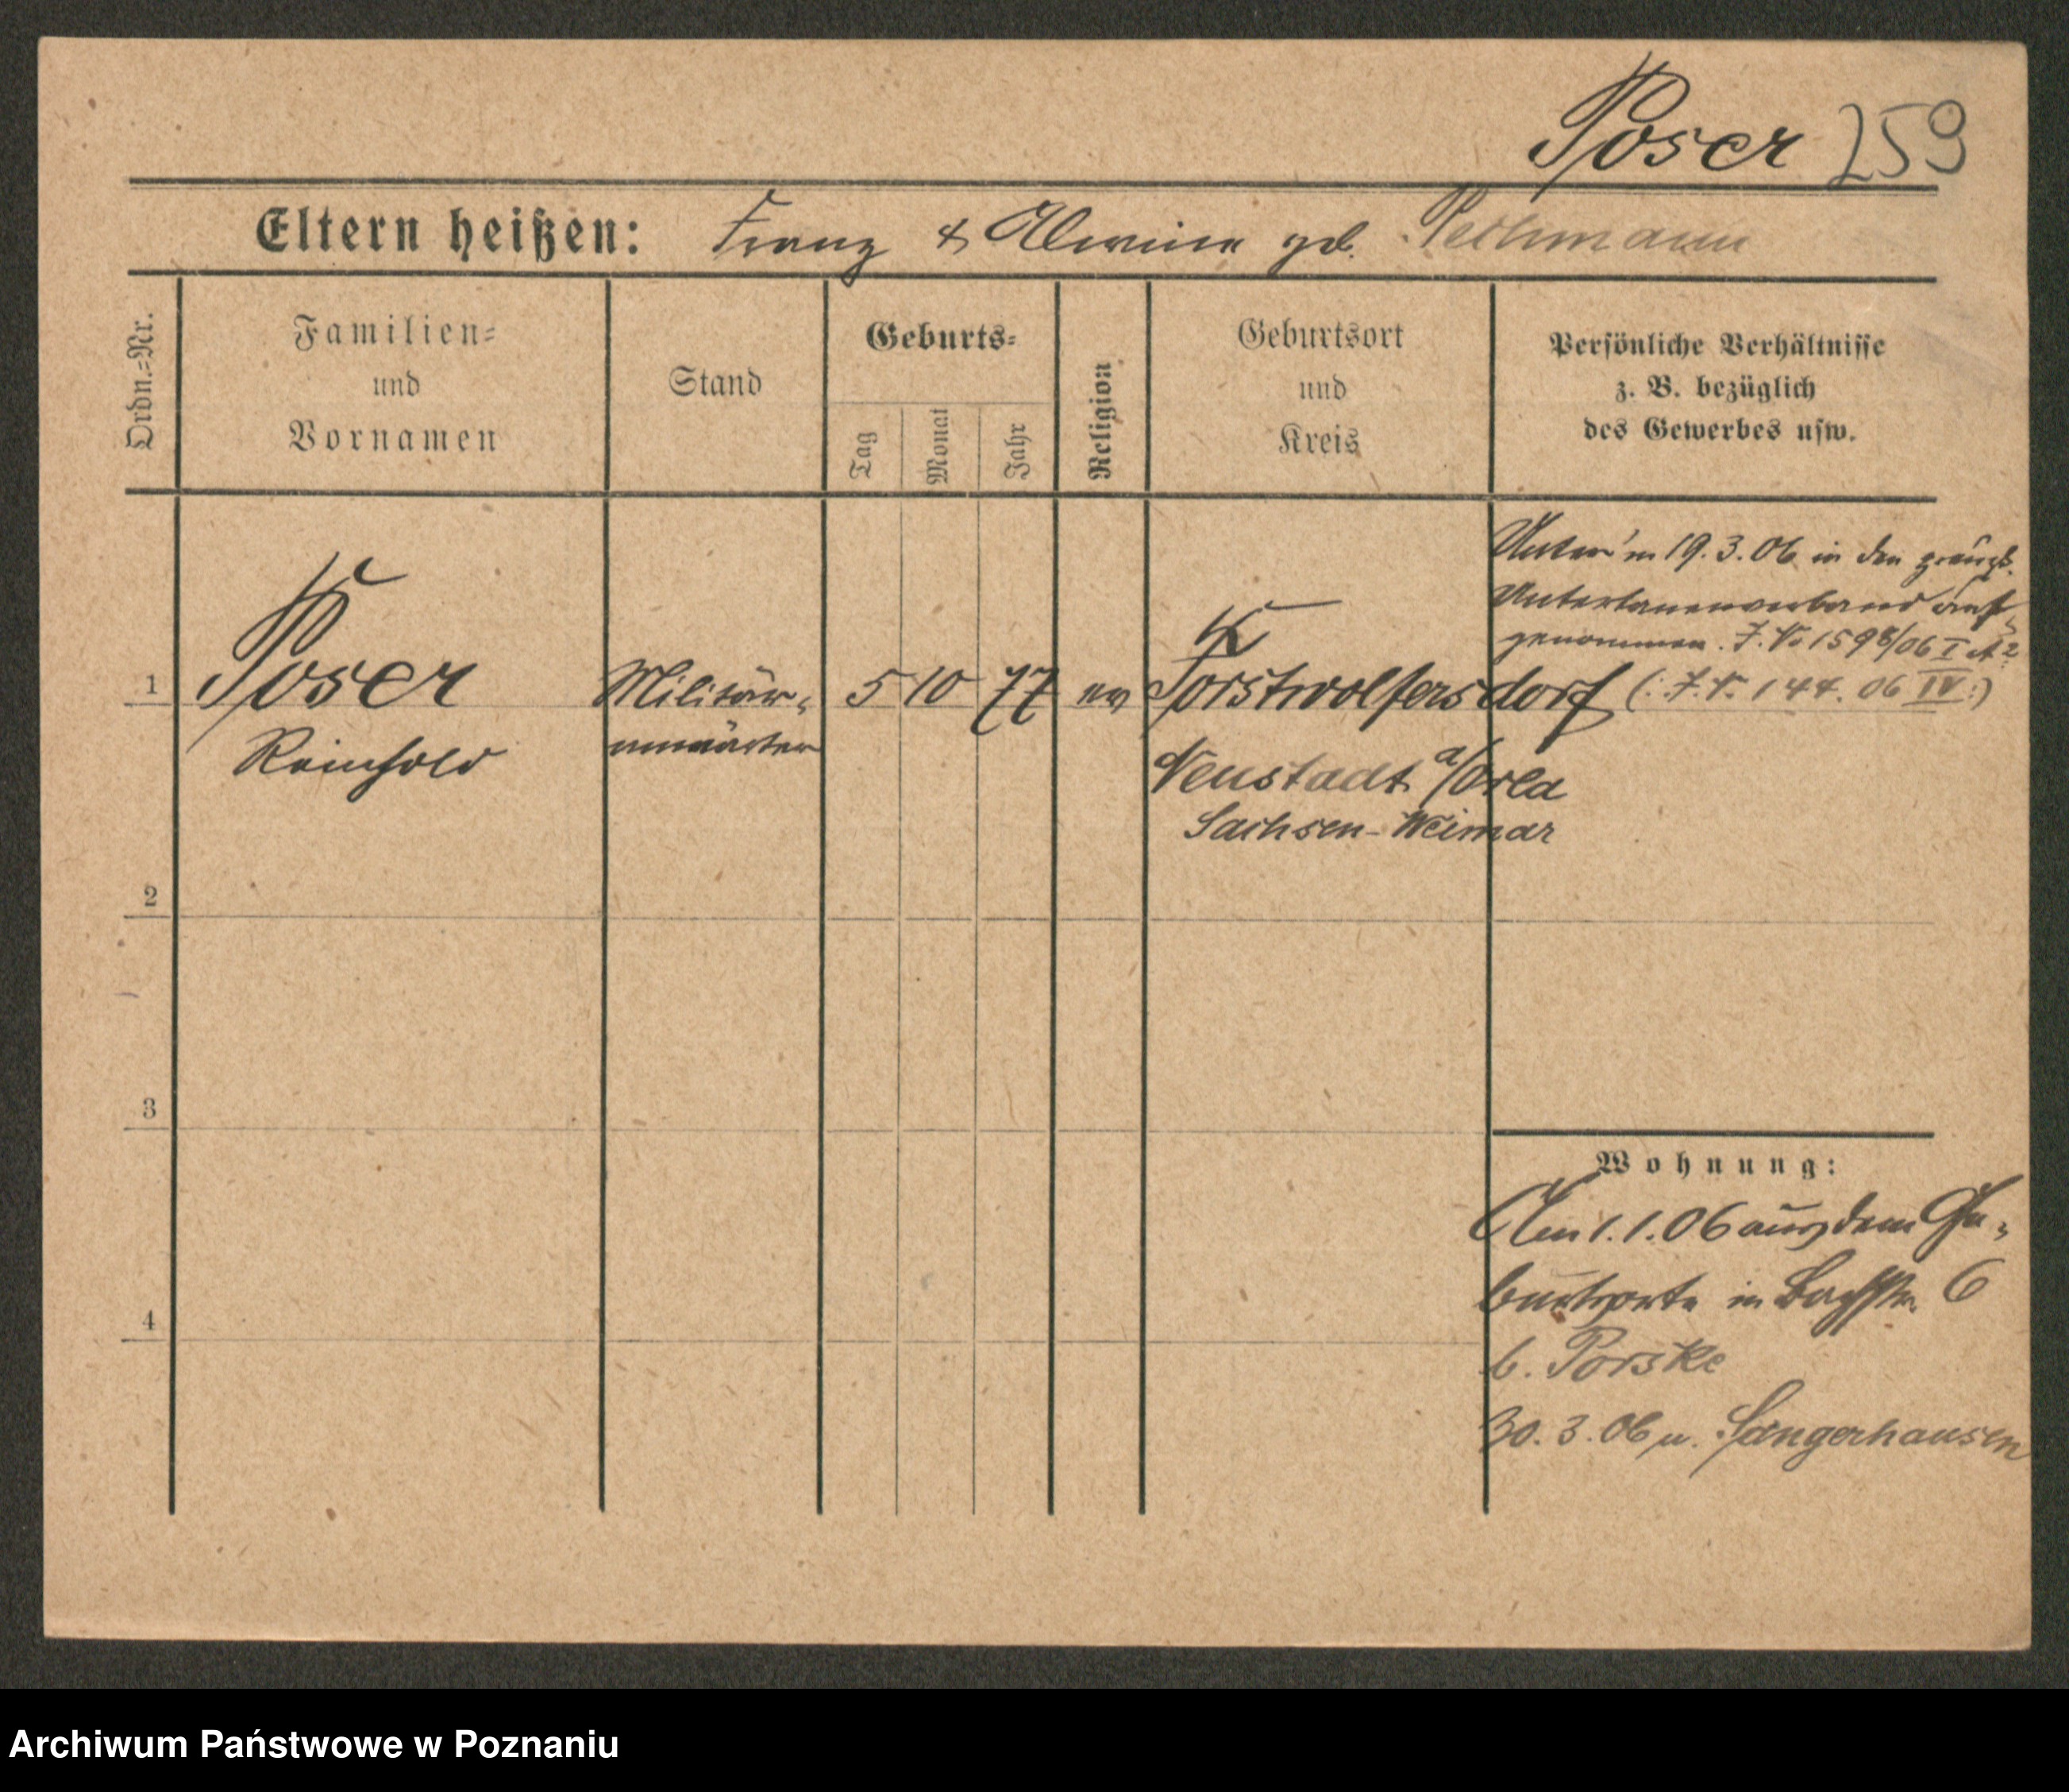 Poser 259
Eltern heißen: Franz & Alwine geb. Pethmann
Ordn.-Nr.
Familien-
und
Vornamen
Stand
Geburts-
Tag
Monat
Jahr
Religion
Geburtsort
und
Kreis
Persönliche Verhältnisse
z. B. bezüglich
des Gewerbes usw.
Unter'm 19.3.06 in den preuß.
Untertanenverband auf-
genommen. J. No 1598/06 I A 2
1 Poser Militär- 5 10 77 ev Forstwolfersdorf (: J. N. 144. 06 IV :)
Reinhold anwärter Neustadt a/Orla
Sachsen-Weimar
2
3
Wohnung:
Am 1.1.06 aus dem Ge-
burtsorte in Bachstr. 6
4
b. Porske
30. 3. 06 n. Sangerhausen
Archiwum Państwowe w Poznaniu